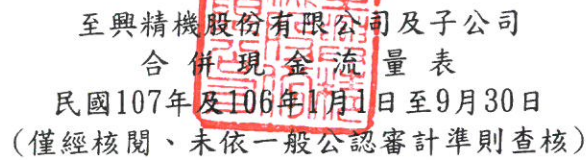 至興精機股份有限公司及子公司
合併現金流量表
民國107年及106年1月1日至9月30日
(僅經核閱、未依一般公認審計準則查核)